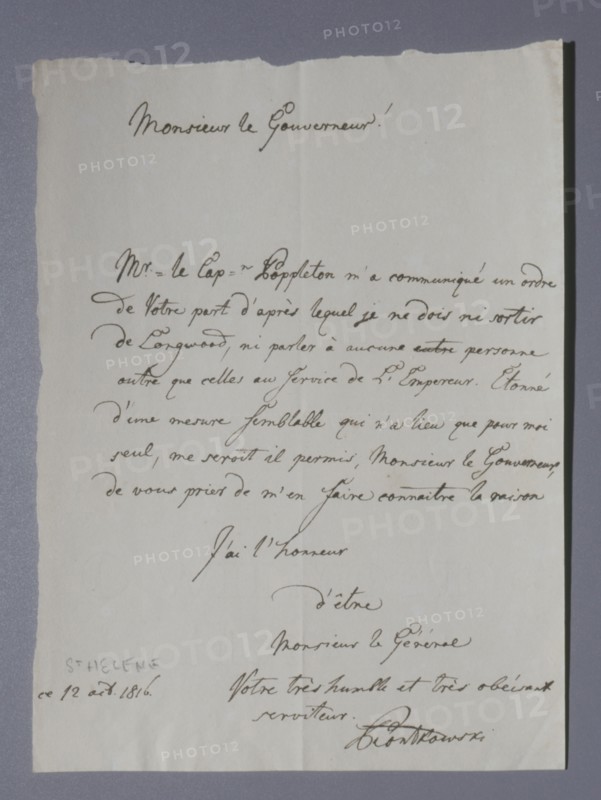 Monsieur le Gouverneur!
Mr = le Cap = n Poppleton m'a communiqué un ordre
de Votre part d'après lequel je ne dois ni sortir
de Longwood, ni parler à aucune personne
outre que celles au Service de L'Empereur. Etonné
d'une mesure Semblable qui n'a lieu que pour moi
seul, me seroit il permis, Monsieur le Gouverneur,
de vous prier de m'en faire connaitre la raison
J'ai l'honneur
d'être
Monsieur le Général
ST HELENE
ce 12 1816.
Votre très humble et très obéisant
serviteur.
Piontkowski
PHOTO12